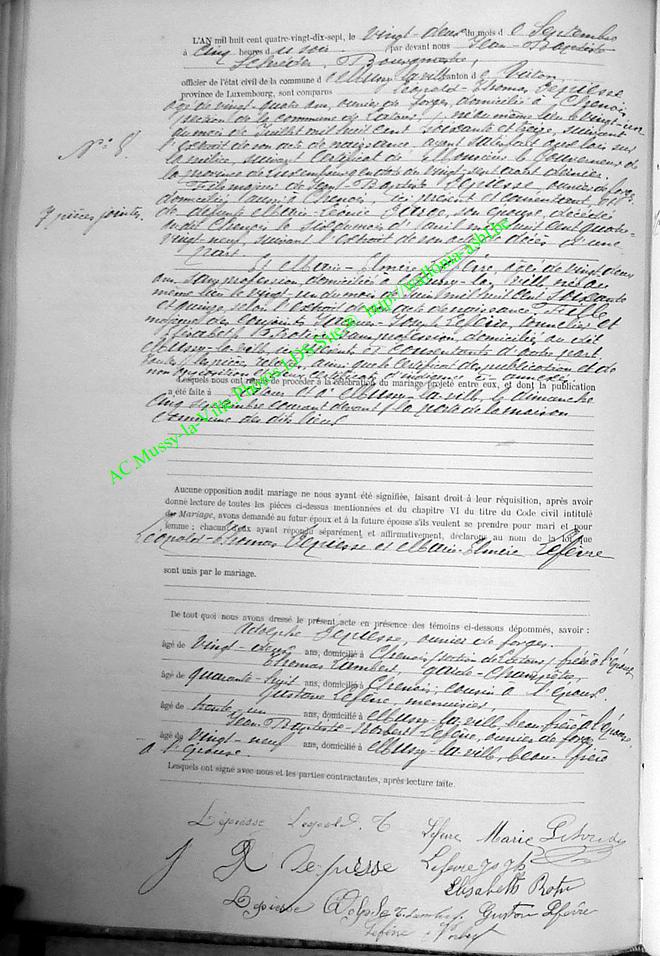 L'AN mil huit cent quatre-vingt-dix-sept, le vingt-deux du mois de Septembre
à cinq heures du soir par devant nous Jean-Baptiste
Schréder, Bourgmestre,
officier de l'état civil de la commune de Mussy-la-ville canton de Virton,
province de Luxembourg, sont comparus Léopold-Thomas Lépiesse
âgé de vingt-quatre ans, ouvrier de forges, domicilié à Chenois,
section de la commune de Latour, né du même lieu le vingt-un
du mois de Juillet mil huit cent soixante et treize, suivant
N° 8.
l'extrait de son acte de naissance, ayant satisfait aux lois sur
la milice, suivant certificat de Monsieur le Gouverneur de
la province de Luxembourg en date du vingt-sept août dernier.
Fils majeur de Jean-Baptiste Lépiesse, ouvrier de forges
7 pièces jointes.
domicilié aussi à Chenois, ici présent et consentant, et
de défunte Marie-Léonie son épouse, décédée
audit Chenois le six du mois d'avril mil huit cent quatre-
vingt-neuf, suivant l'extrait de son acte de décès d'une
part.
Et Marie- Lefèvre, âgée de vingt-deux
ans, sans profession, domiciliée à Mussy-la-ville, née au
même lieu le vingt-un du mois de Juin mil huit cent soixante
et quinze, selon l'extrait de son acte de naissance. Fille
majeure des conjoints Jacques-Joseph Lefèvre, et
Elisabeth sans profession, domiciliés au dit
Mussy-la-ville, ici présents et consentants d'autre part.
toutes les pièces ainsi que le certificat de publication et de
non opposition certificat d'indigence ci-annexé.
Lesquels nous ont requis de procéder à la célébration du mariage projeté entre eux, et dont la publication
a été faite à Latour et à Mussy-la-ville, le dimanche
cinq septembre courant devant la porte de la maison
commune des dits lieux
AC Mussy-la-Ville Photos I.D's Site @ http://wallonia-asbl.be
Aucune opposition audit mariage ne nous ayant été signifiée, faisant droit à leur réquisition, après avoir
donné lecture de toutes les pièces ci-dessus mentionnées et du chapitre VI du titre du Code civil intitulé
du Mariage, avons demandé au futur époux et à la future épouse s'ils veulent se prendre pour mari et pour
femme ; chacun d'eux ayant répondu séparément et affirmativement, déclarons au nom de la loi que
Léopold-Thomas Lépiesse et Marie- Lefèvre
sont unis par le mariage.
De tout quoi nous avons dressé le présent acte en présence des témoins ci-dessous dépommés, savoir :
Adolphe Lépiesse, ouvrier de forges,
âgé de vingt-deux ans, domicilié à Chenois, section de Latour, frère à l'époux,
Thomas Lambert, garde-champêtre,
âgé de quarante-sept ans, domicilié à Chenois, cousin à l'époux,
Gustave Lefèvre, menuisier,
âgé de trente-un ans, domicilié à Mussy-la-ville, beau-frère à l'époux,
Jean-Baptiste-Norbert Lefèvre, ouvrier de forges
âgé de vingt-neuf ans, domicilié à Mussy-la-ville, beau-frère
à l'épouse.
Lesquels ont signé avec nous et les parties contractantes, après lecture faite.
Lépiesse Léopold. T Lefevre Marie
J B Lépiesse Lefevre
Elisabeth
Lepiesse Adolphe T. Lambert Gustave Lefèvre
Lefèvre Norbert